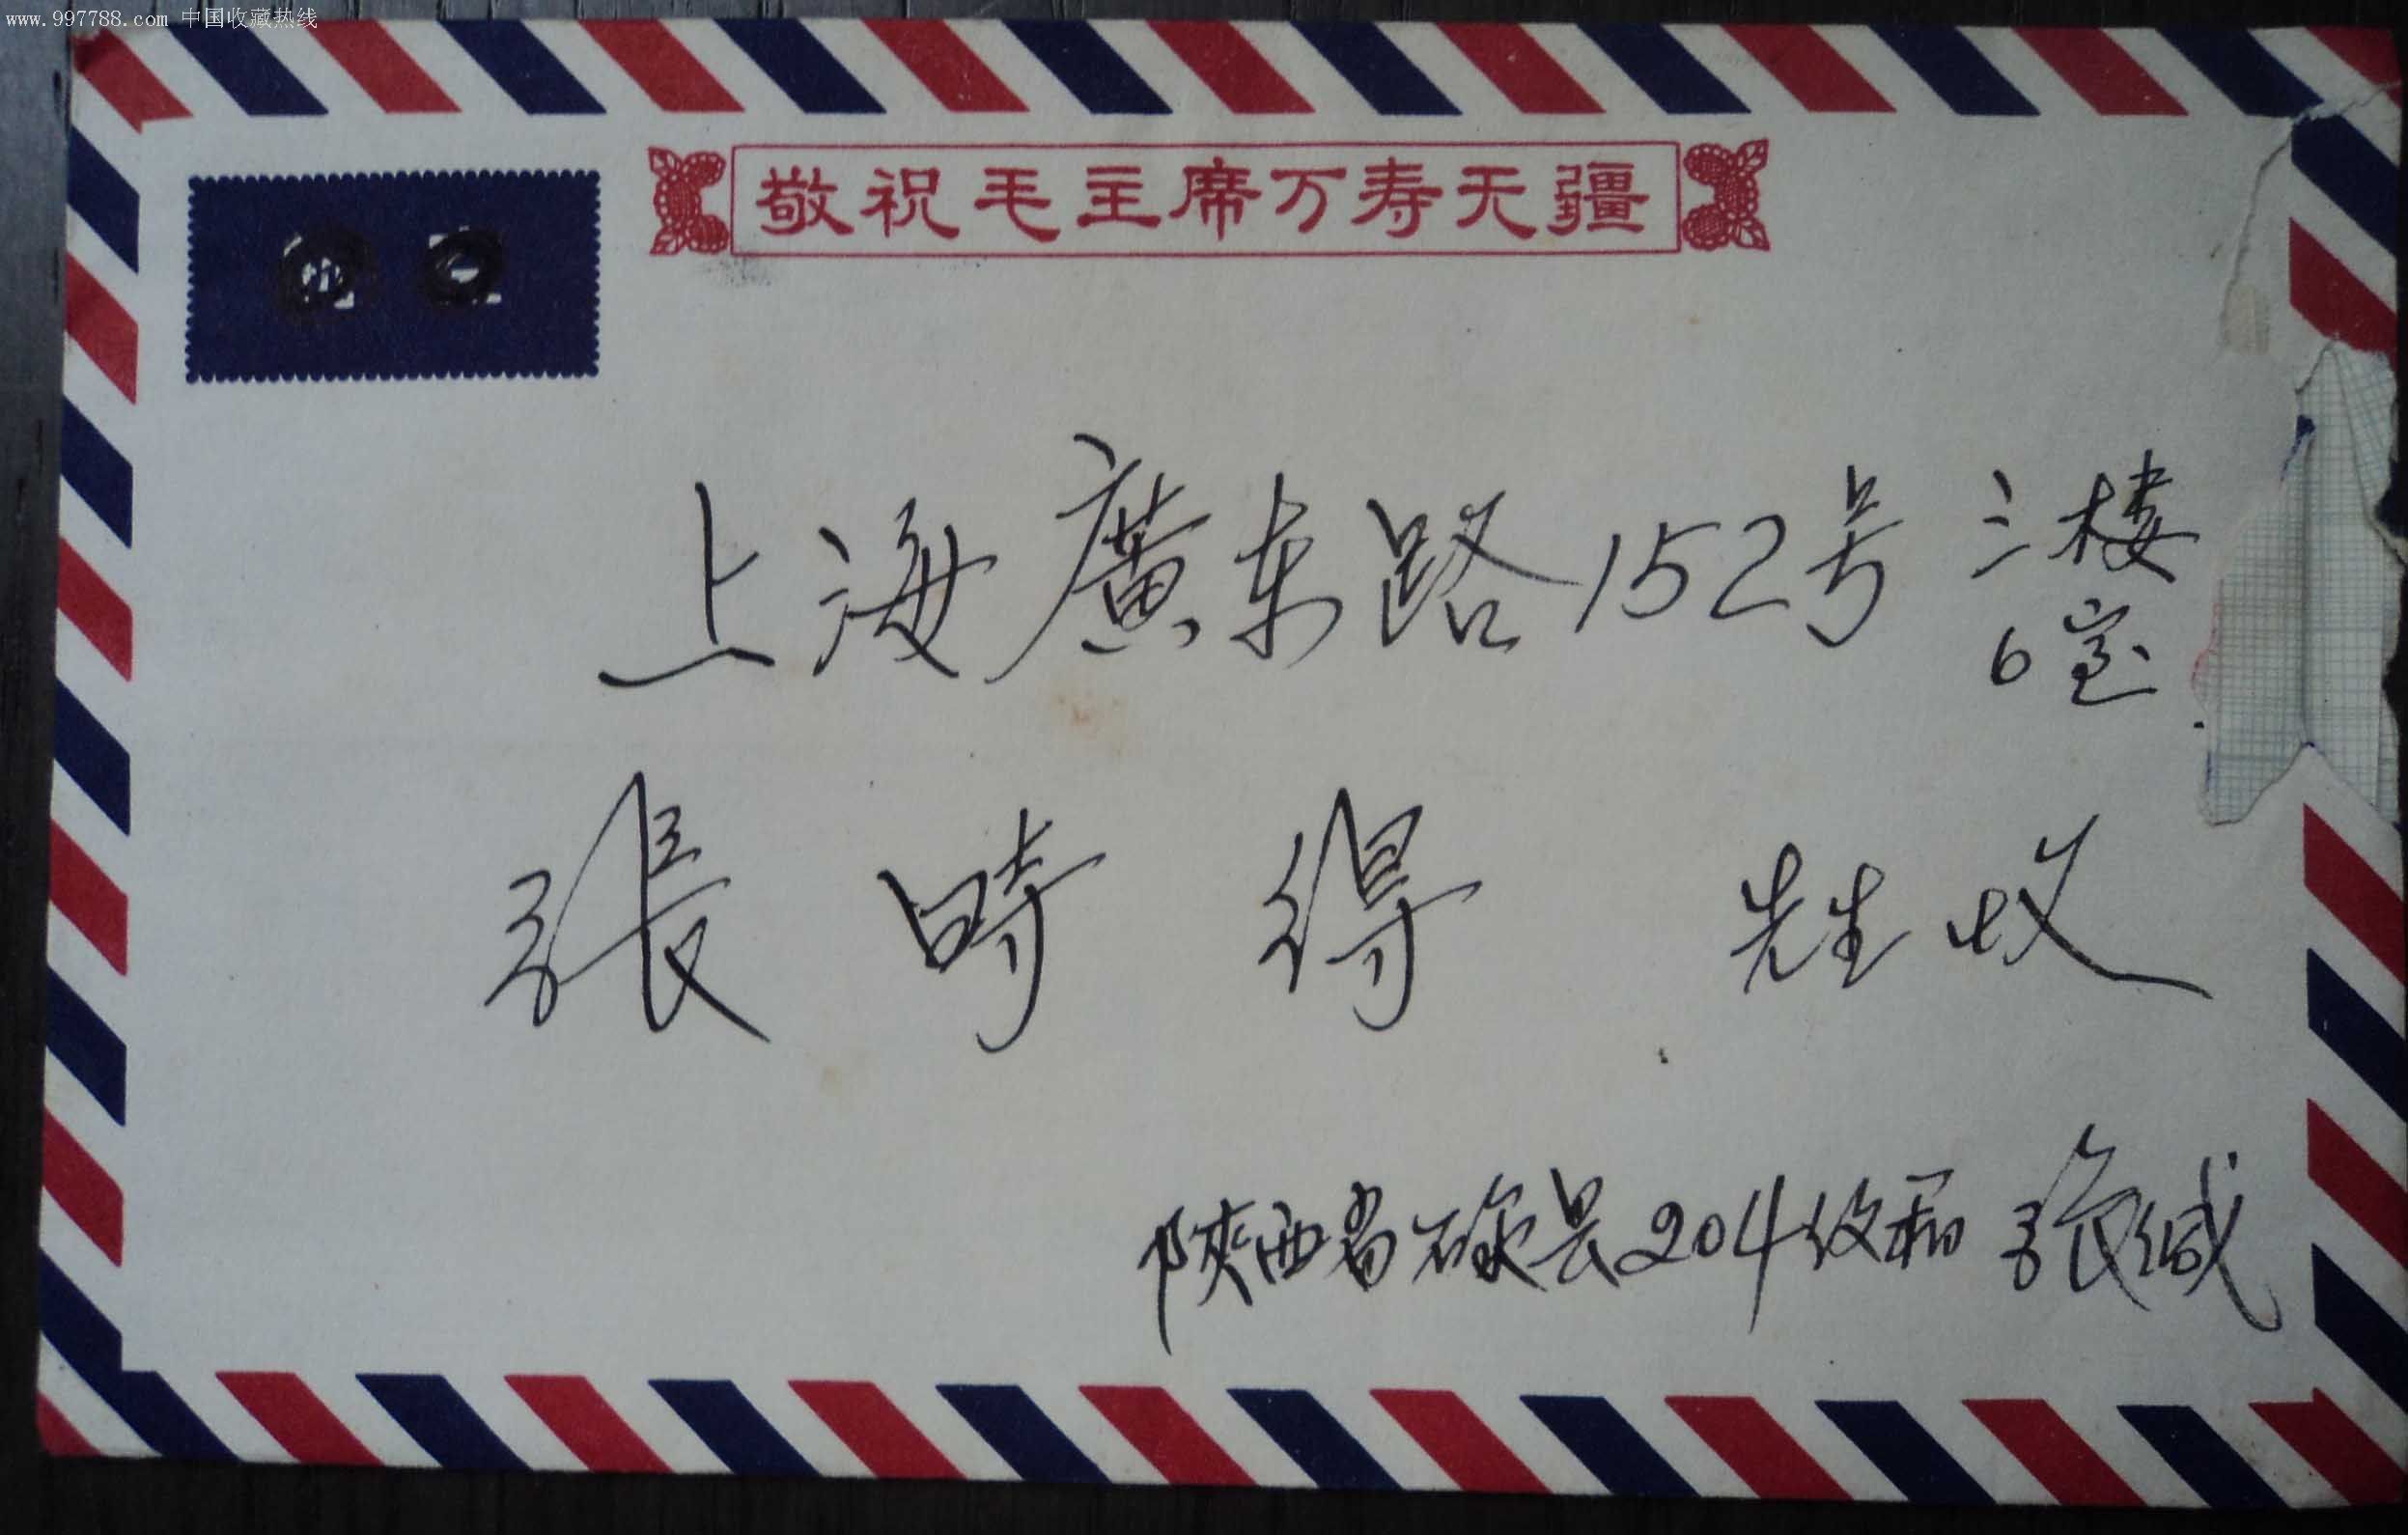 www.997788.com 中国收藏热线
敬祝毛主席万寿无疆
上海廣东路152号 三楼
6室
張時得 先生收
陝西省 县204 張缄